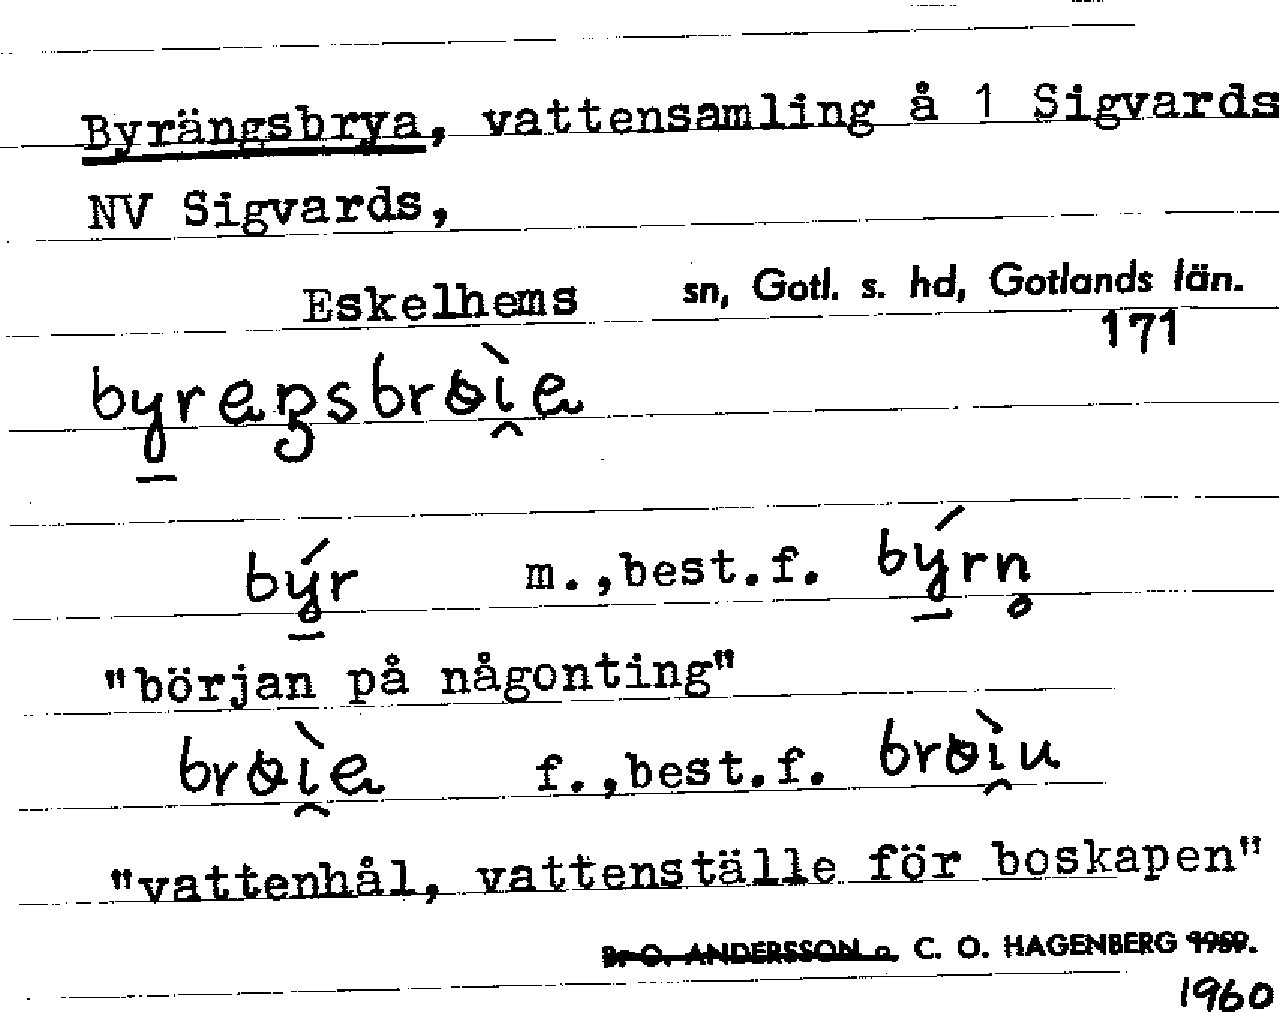 Byrängsbrya, vattensamling å 1 Sigvards
NV Sigvards,
Eskelhems sn, Gotl. s. hd, Gotlands län.
171
býr m.,best.f.
"början på någonting"
f.,best.f.
"vattenhål, vattenställe för boskapen"
C. O. HAGENBERG 1959.
1960